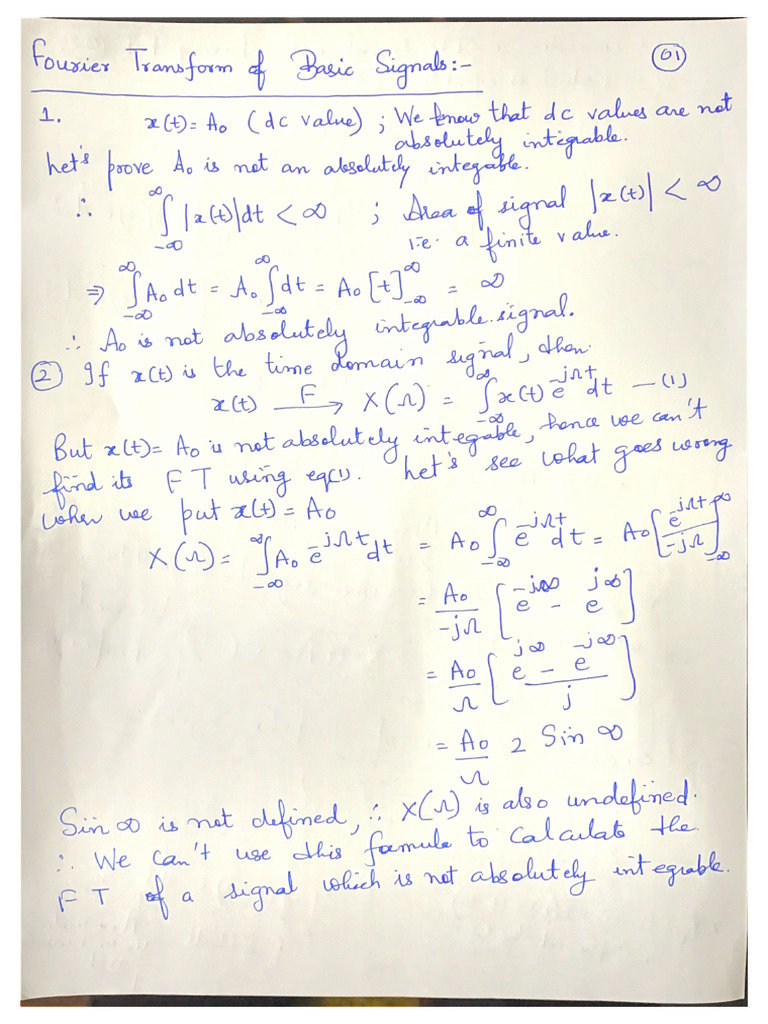 Fourier Transform of Basic Signals:- 01
1. x(t)= A₀ (dc value) ; We know that dc values are not
absolutely integrable.
Let's prove A₀ is not an absolutely integable.
∴ ∫_{-∞}^{∞} |x(t)|dt < ∞ ; Area of signal |x(t)| < ∞
i.e. a finite value.
⇒ ∫_{-∞}^{∞} A₀ dt = A₀ ∫_{-∞}^{∞} dt = A₀ [t]_{-∞}^{∞} = ∞
∴ A₀ is not absolutely integrable signal.
② If x(t) is the time domain signal, then
x(t) —F→ X(Ω) = ∫_{-∞}^{∞} x(t) e^{-jΩt} dt —(1)
But x(t)= A₀ is not absolutely integable, hence we can't
find its FT using eq(1). Let's see what goes wrong
when we put x(t) = A₀
X(Ω) = ∫_{-∞}^{∞} A₀ e^{-jΩt} dt = A₀ ∫_{-∞}^{∞} e^{-jΩt} dt = A₀ [e^{-jΩt}/-jΩ]_{-∞}^{∞}
= A₀/-jΩ [e^{-j∞} - e^{j∞}]
= A₀/Ω [(e^{j∞} - e^{-j∞})/j]
= A₀/Ω 2 Sin ∞
Sin ∞ is not defined, ∴ X(Ω) is also undefined.
∴ We can't use this formula to calculate the
FT of a signal which is not absolutely integrable.